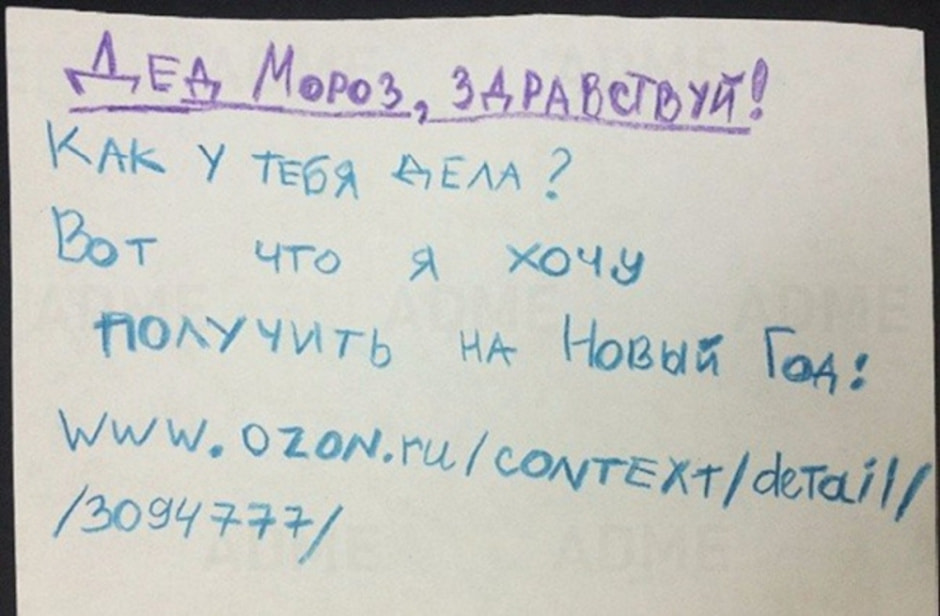 ДЕД МОРОЗ, ЗДРАВСТВУЙ!
КАК У ТЕБЯ ДЕЛА?
ВОТ ЧТО Я ХОЧУ
ПОЛУЧИТЬ НА НОВЫЙ ГОД:
WWW.OZON.ru/CONTEXT/deTail/
/3094777/
ADME
ADME
ADME
ADME
ADME
ADME
ADME